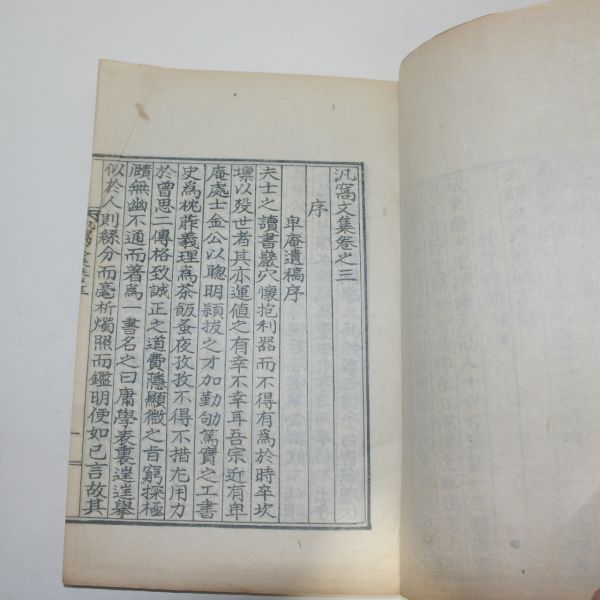 汎窩文集卷之三
序
卑庵遺稿序
夫士之讀書巖穴懷抱利器而不得有爲於時卒坎
壈以歿世者其亦運値之有幸不幸耳吾宗近有卑
庵處士金公以聰明穎拔之才加勤劬篤實之工書
史爲枕藉義理爲茶飯蚤夜孜孜不得不措尤用力
於曾思二傳格致誠正之道費隱顯微之旨窮探極
賾無幽不通而著爲一書名之曰庸學表裏逬逬擧
似於人則絲分而毫析燭照而鑑明便如已言故其